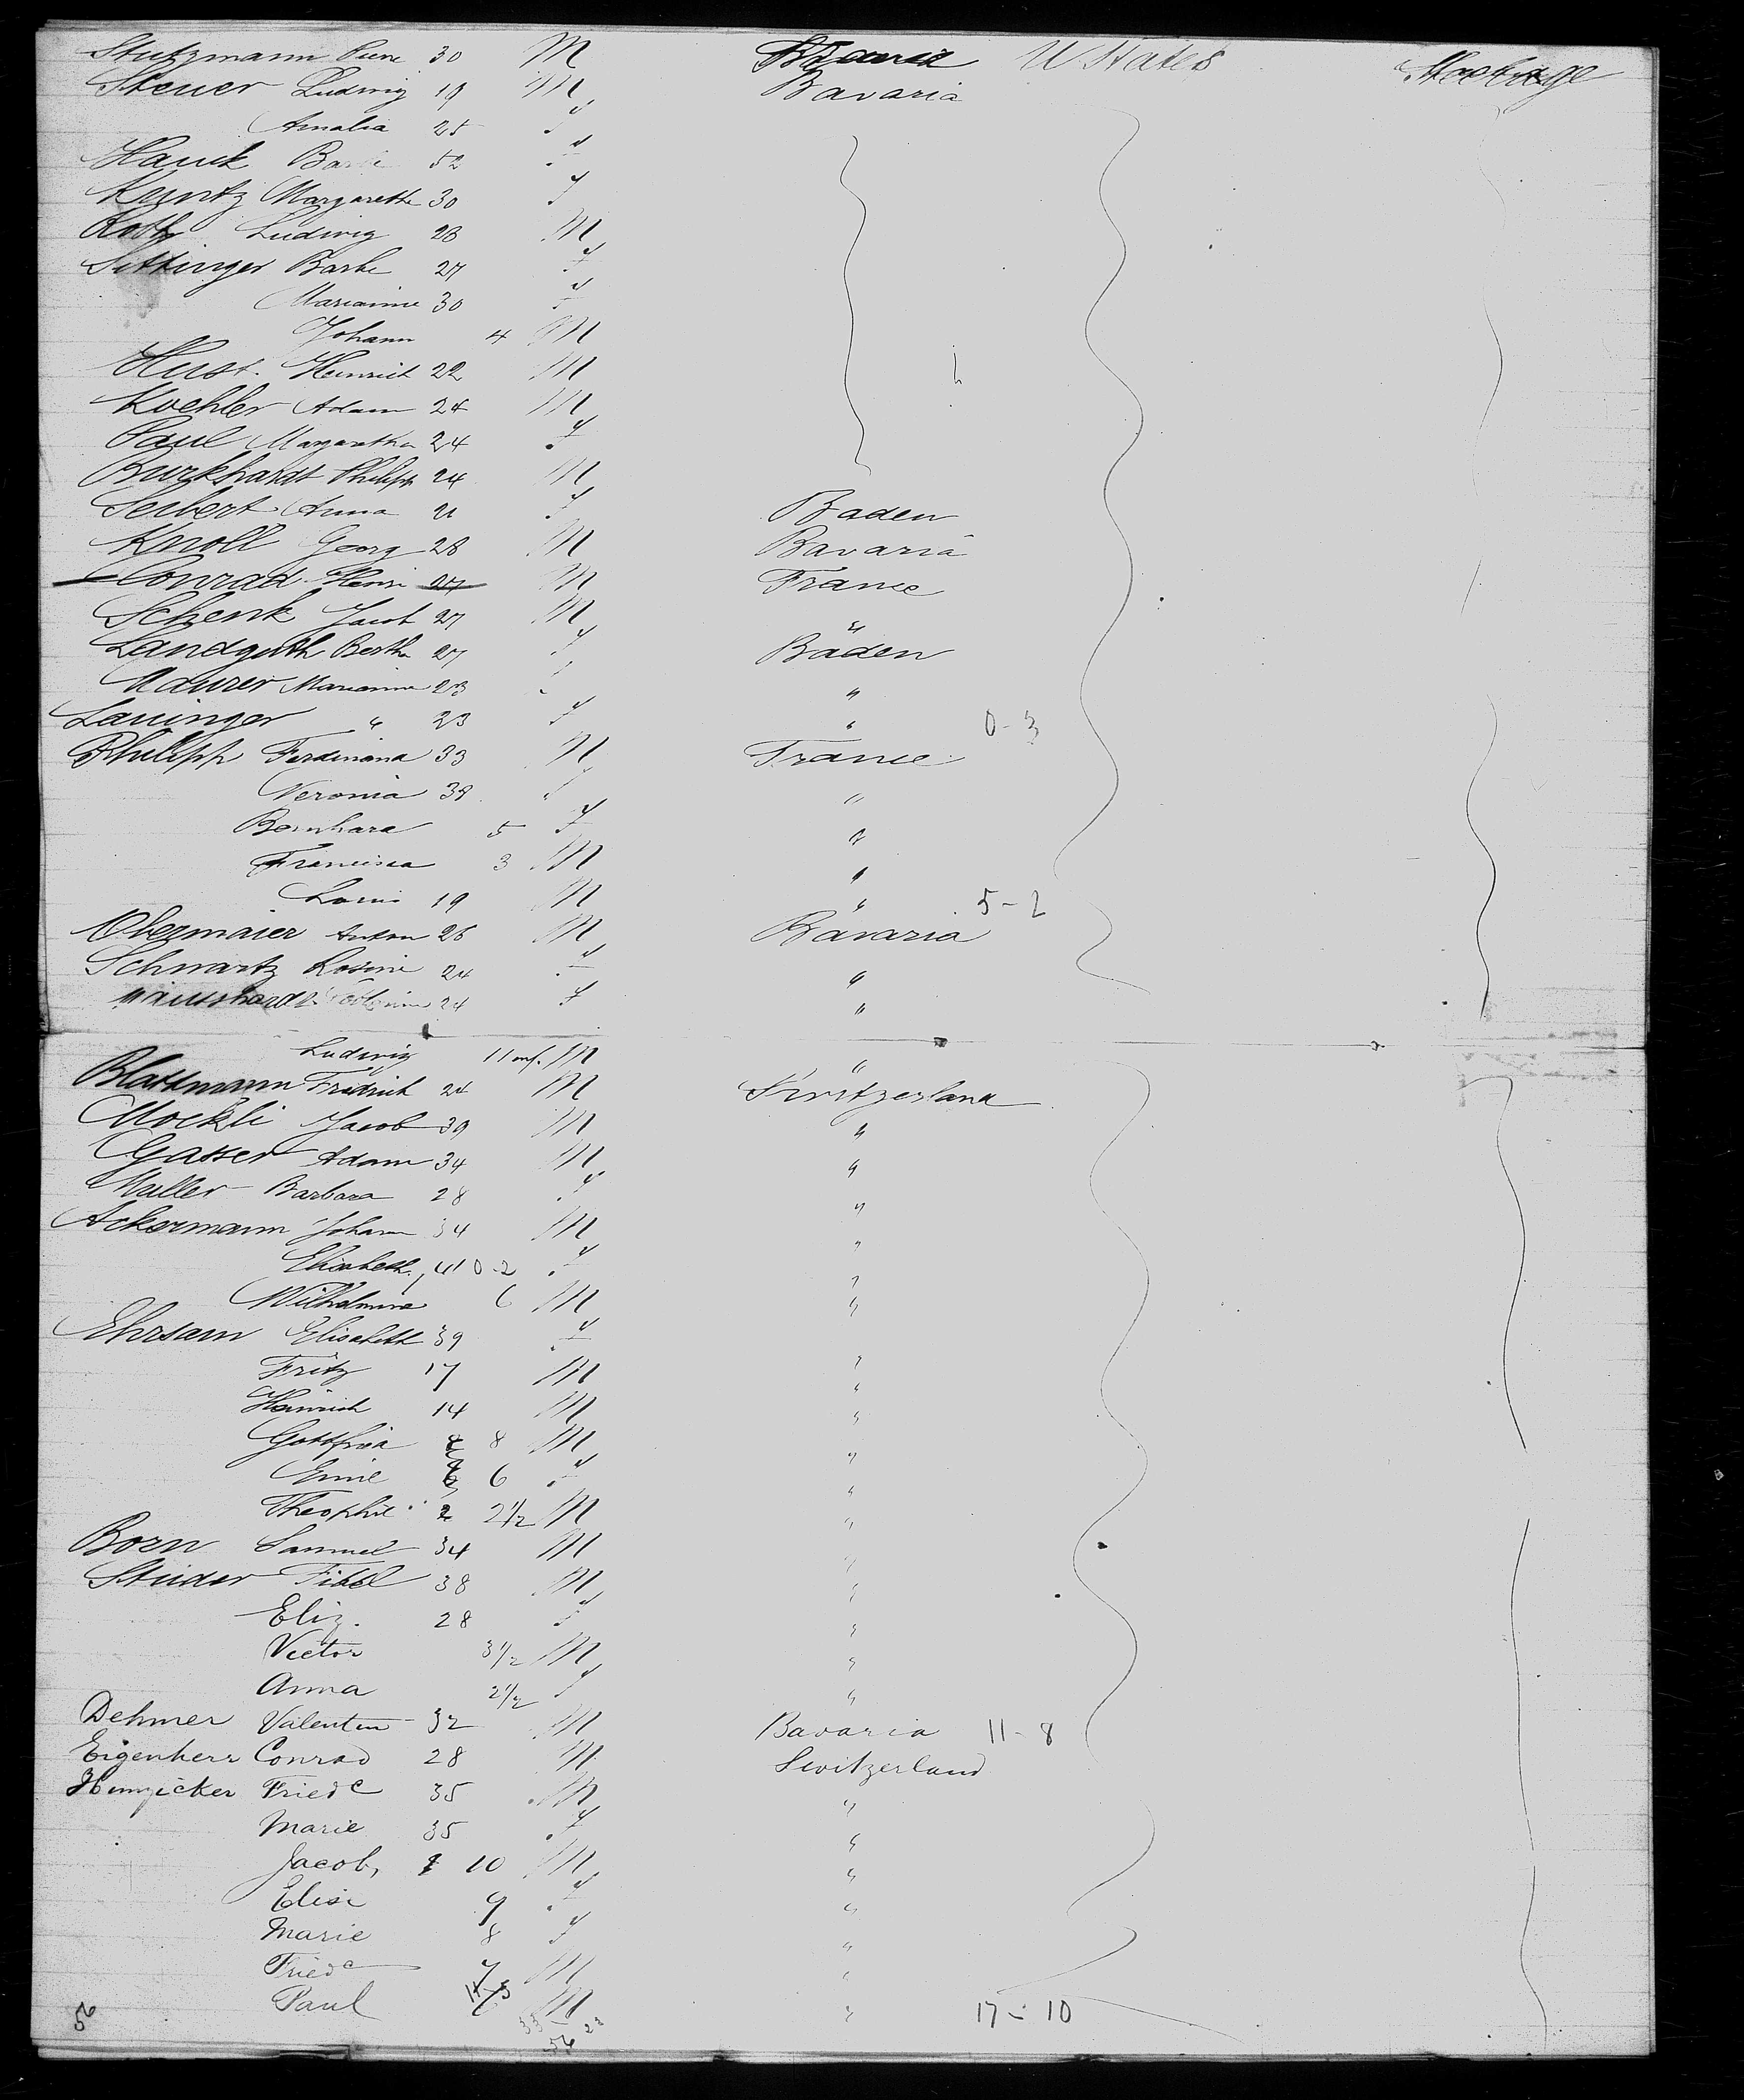 Stutzmann 30 M France U States
Steuer Ludwig 19 M Bavaria
Amalia 25 f
Hauck 52 f
Kuntz Margarethe 30 f
Roth Ludwig 23 M
Sittinger Barbe 27 f
Marianne 30 f
Johann 4 M
Hust. Heinrich 22 M
Koehler Adam 24 M
Paul Margaretha 24 f
Burkhardt Philipp 24 M
Seibert Anna 21 f Baden
Knoll Georg 28 M Bavaria
Conrad Henri 27 M France
Schenk Jacob 27 M "
Landguth Bertha 27 f Baden
Maurer Marianne 23 f "
Lauinger " 23 f " 0-3
Philipp Ferdinand 33 M France
Veronia 38 f "
Bernhard 5 f "
Francisca 3 M "
Louis 19 M " 5-2
Obermaier Anton 26 M Bavaria
Schwartz Rosine 24 f "
24 f "
Ludwig 11 M "
Blattmann Fridrich 24 M Switzerland
Mockli Jacob 39 M "
Gasser Adam 34 M "
Muller Barbara 28 f "
Ackermann Johann 34 M "
Elisabeth f "
Wilhelmine 6 M "
Ehrsam Elisabeth 39 f "
Fritz 17 M "
Heinrich 14 M "
Gottfried 8 M "
Emie 6 f "
Theophil 2 2½ M "
Born Samuel 34 M "
Studer Fidel 38 M "
Eliz. 28 f "
Victor 3½ M "
Anna 2½ f "
Dehmer Valentin 32 M Bavaria 11-8
Eigenherr Conrad 28 M Switzerland
Hunzicker Friedc 35 M "
Marie 35 f "
Jacob, 10 M "
Elise 9 f "
Marie 8 f "
Friedc 7 M "
Paul M " 17-10
56 33 23
56